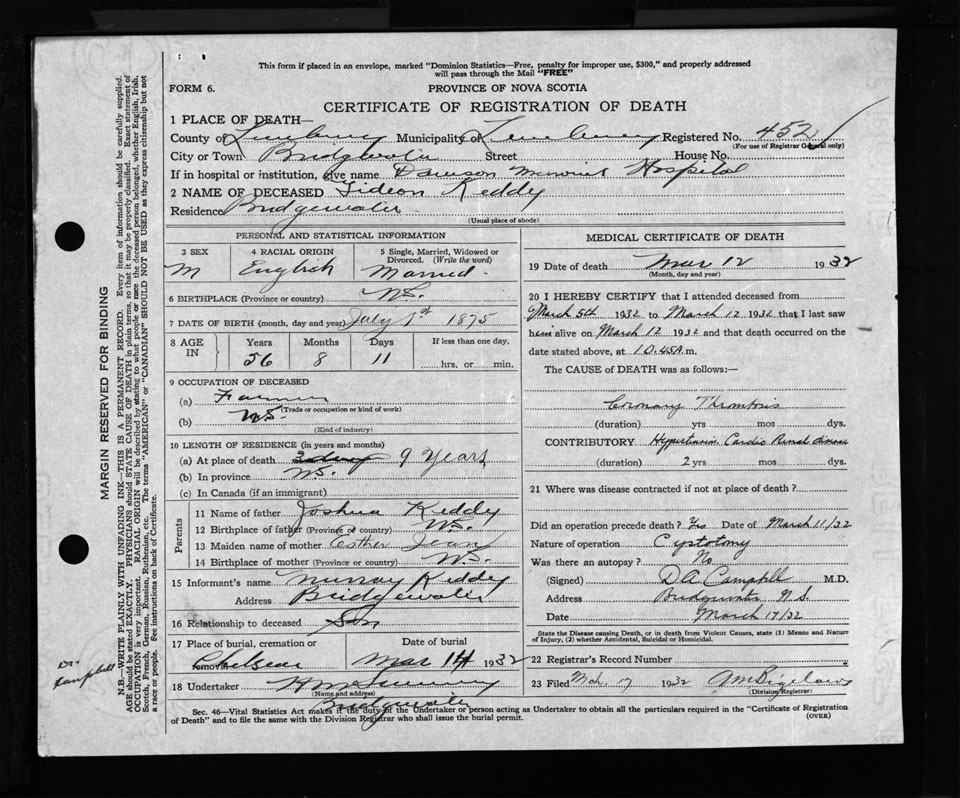 This form if placed in an envelope, marked "Dominion Statistics—Free, penalty for improper use, $300," and properly addressed
will pass through the Mail "FREE"
FORM 6.
PROVINCE OF NOVA SCOTIA
CERTIFICATE OF REGISTRATION OF DEATH
1 PLACE OF DEATH—
County of Lunenburg Municipality of Lunenburg Registered No. 452
(For use of Registrar General only)
City or Town Bridgewater Street House No.
If in hospital or institution, give name Dawson Memorial Hospital
2 NAME OF DECEASED Gideon Keddy
Residence Bridgewater
(Usual place of abode)
PERSONAL AND STATISTICAL INFORMATION
3 SEX 4 RACIAL ORIGIN 5 Single, Married, Widowed or
Divorced. (Write the word)
M English Married
6 BIRTHPLACE (Province or country) N.S.
7 DATE OF BIRTH (month, day and year) July 1st 1875
8 AGE IN Years Months Days If less than one day,
56 8 11 hrs. or min.
9 OCCUPATION OF DECEASED
(a) Farmer
(Trade or occupation or kind of work)
(b) N.S.
(Kind of industry)
10 LENGTH OF RESIDENCE (in years and months)
(a) At place of death 9 Years
(b) In province N.S.
(c) In Canada (if an immigrant)
Parents
11 Name of father Joshua Keddy
12 Birthplace of father (Province or country) N.S.
13 Maiden name of mother Esther Jean
14 Birthplace of mother (Province or country) N.S.
15 Informant's name Murray Keddy
Address Bridgewater
16 Relationship to deceased Son
17 Place of burial, cremation or Date of burial
Chelsea Mar 14 1932
18 Undertaker
(Name and address)
Bridgewater
MEDICAL CERTIFICATE OF DEATH
19 Date of death Mar 12 1932
(Month, day and year)
20 I HEREBY CERTIFY that I attended deceased from
March 5th 1932 to March 12 1932 that I last saw
him alive on March 12 1932 and that death occurred on
date stated above, at 10.45A m.
The CAUSE of DEATH was as follows:—
Coronary Thrombosis
(duration) yrs mos dys.
CONTRIBUTORY Hypertension Cardio Renal disease
(duration) 2 yrs mos dys.
21 Where was disease contracted if not at place of death?
Did an operation precede death? Yes Date of March 11/32
Nature of operation Cystotomy
Was there an autopsy? No
(Signed) D A Campbell M.D.
Address Bridgewater N.S.
Date March 17/32
State the Disease causing Death, or in death from Violent Causes, state (1) Means and Nature
of Injury, (2) whether Accidental, Suicidal or Homicidal.
22 Registrar's Record Number
23 Filed Mch. 17 1932
(Division Registrar)
Sec. 46—Vital Statistics Act makes it the duty of the Undertaker or person acting as Undertaker to obtain all the particulars required in the "Certificate of Registration
of Death" and to file the same with the Division Registrar who shall issue the burial permit. (OVER)
MARGIN RESERVED FOR BINDING
N.B.—WRITE PLAINLY WITH UNFADING INK—THIS IS A PERMANENT RECORD. Every item of information should be carefully supplied.
AGE should be stated EXACTLY. PHYSICIANS should STATE CAUSE OF DEATH in plain terms, so that it may be properly classified. Exact statement of
OCCUPATION is very important. RACIAL ORIGIN will be described by stating to what people or race the deceased person belonged, whether English, Irish,
Scotch, French, German, Russian, Ruthenian, etc. The terms "AMERICAN" or "CANADIAN" SHOULD NOT BE USED as they express citizenship but not
a race or people. See instructions on back of Certificate.
Dr.
Campbell